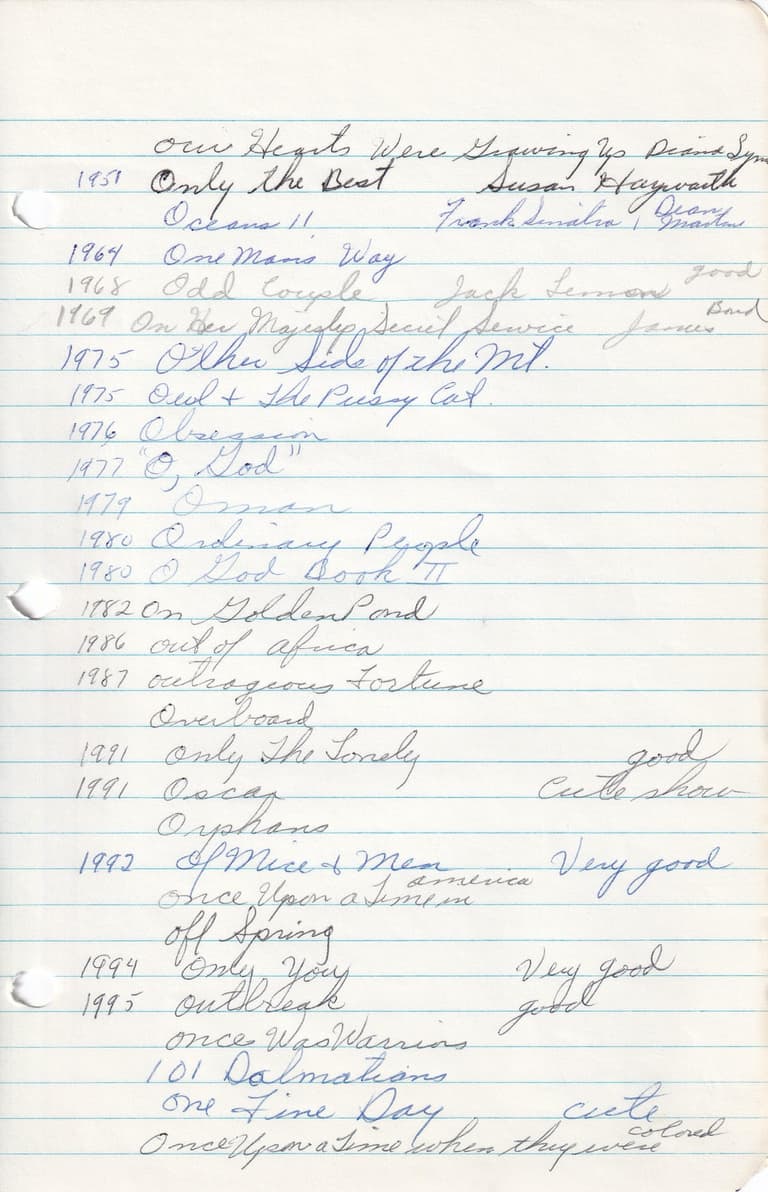 Our Hearts Were Growing Up Diana Lynn
1951 Only the Best Susan Hayworth
Oceans 11 Frank Sinatra, Dean Martin
1964 One Mans Way
1968 Odd Couple Jack Lemon good
1969 On Her Majestys Secret Service James Bond
1975 Other Side of the Mt.
1975 Owl + The Pussy Cat.
1976 Obsession
1977 "O, God"
1979 Oman
1980 Ordinary People
1980 O God Book II
1982 On Golden Pond
1986 out of Africa
1987 outrageous Fortune
Overboard
1991 only The Lonely good
1991 Oscar Cute show
Orphans
1992 Of Mice & Men Very good
once Upon a Time in america
off Spring
1994 Only You Very good
1995 outbreak good
once Was Warriors
101 Dalmations
One Fine Day cute
Once Upon a Time when they were colored